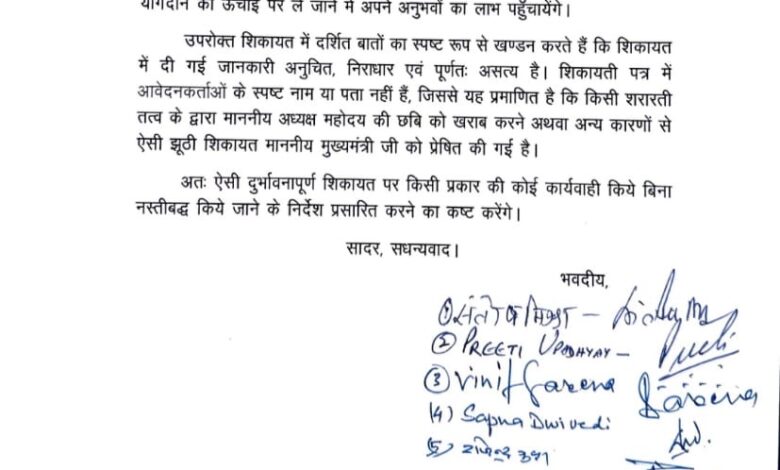 योगदान को ऊंचाई पर ले जाने में अपने अनुभवों का लाभ पहुँचायेंगे।
उपरोक्त शिकायत में दर्शित बातों का स्पष्ट रूप से खण्डन करते हैं कि शिकायत
में दी गई जानकारी अनुचित, निराधार एवं पूर्णतः असत्य है। शिकायती पत्र में
आवेदनकर्ताओं के स्पष्ट नाम या पता नहीं हैं, जिससे यह प्रमाणित है कि किसी शरारती
तत्व के द्वारा माननीय अध्यक्ष महोदय की छबि को खराब करने अथवा अन्य कारणों से
ऐसी झूठी शिकायत माननीय मुख्यमंत्री जी को प्रेषित की गई है।
अतः ऐसी दुर्भावनापूर्ण शिकायत पर किसी प्रकार की कोई कार्यवाही किये बिना
नस्तीबद्ध किये जाने के निर्देश प्रसारित करने का कष्ट करेंगे।
सादर, सधन्यवाद।
भवदीय,
① संतोष मिश्रा –
② PREETI UPADHYAY –
③ Vinit Saxena Saxena
(4) Sapna Dwivedi
(5)